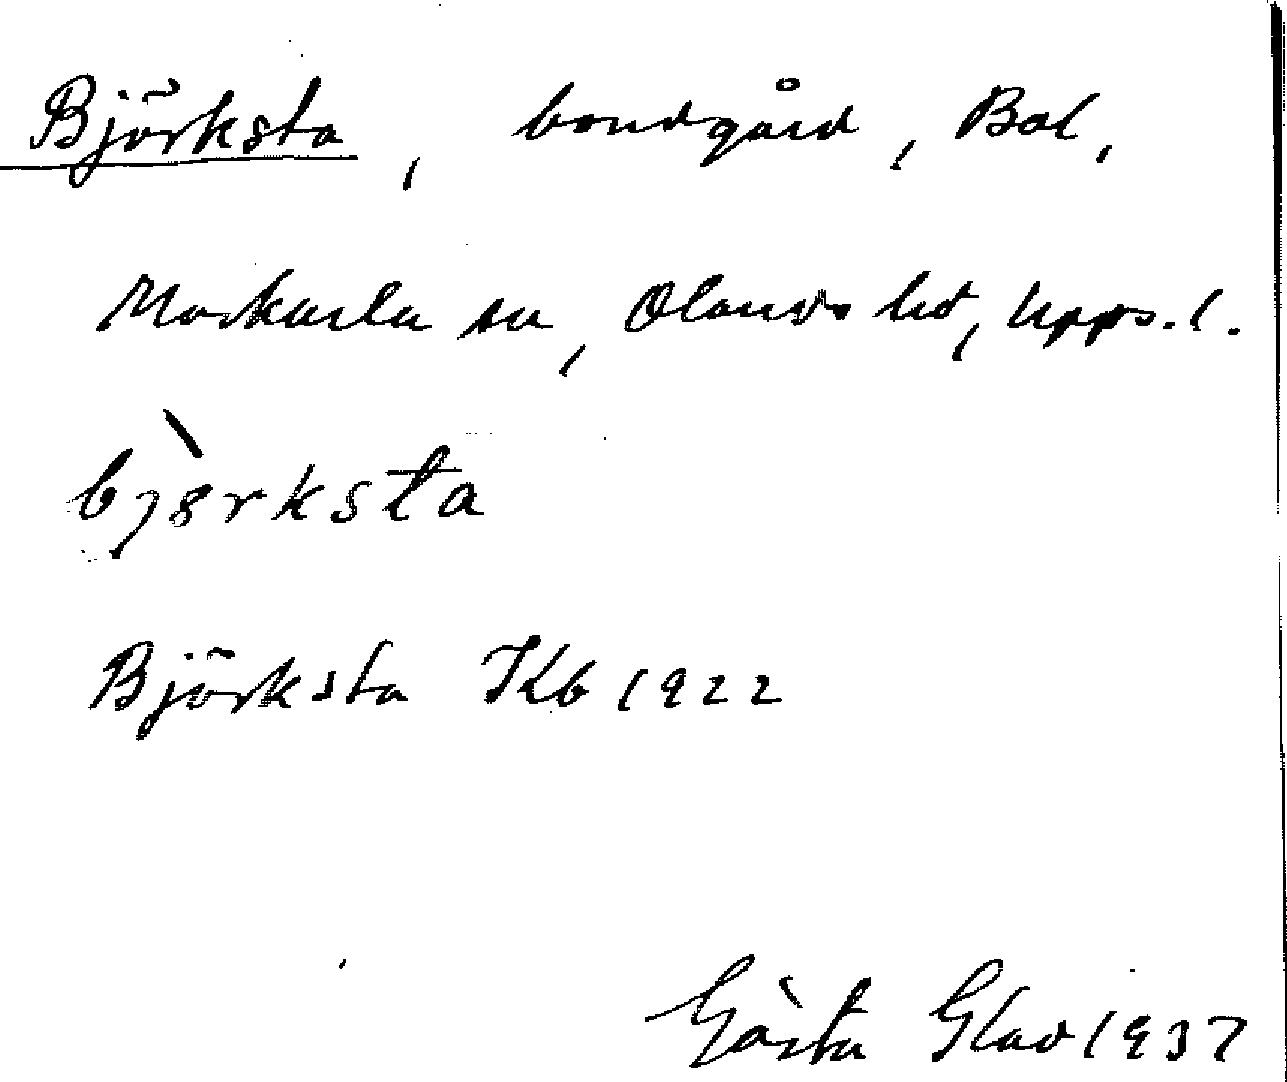 Björksta, bondgård, Bol,
Morkarla sn, Olands hd, Upps.l.
bjørksta
Björksta Kb 1922
Gösta Glad 1937